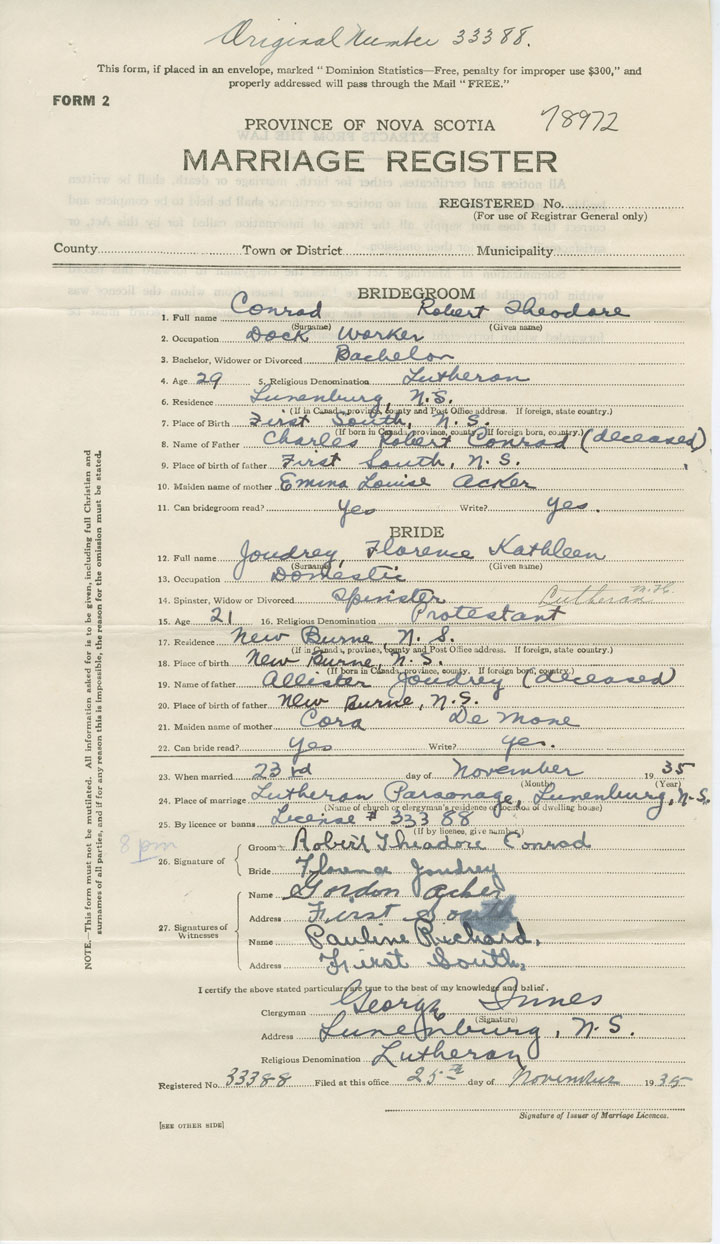 Original Number 33388.
This form, if placed in an envelope, marked "Dominion Statistics—Free, penalty for improper use $300," and
properly addressed will pass through the Mail "FREE."
FORM 2
78972
PROVINCE OF NOVA SCOTIA
MARRIAGE REGISTER
REGISTERED No.
(For use of Registrar General only)
County Town or District Municipality
BRIDEGROOM
1. Full name Conrad Robert Theodore
(Surname) (Given name)
2. Occupation Dock Worker
3. Bachelor, Widower or Divorced Bachelor
4. Age 29 5. Religious Denomination Lutheran
6. Residence Lunenburg, N.S.
(If in Canada, province, county and Post Office address. If foreign, state country.)
7. Place of Birth First South, N.S.
(If born in Canada, province, county. If foreign born, country.)
8. Name of Father Charles Robert Conrad (deceased)
9. Place of birth of father First South, N.S.
10. Maiden name of mother Emma Louise Acker
11. Can bridegroom read? Yes Write? Yes.
BRIDE
12. Full name Joudrey, Florence Kathleen
(Surname) (Given name)
13. Occupation Domestic
14. Spinster, Widow or Divorced Spinster Lutheran M.H.
15. Age 21 16. Religious Denomination Protestant
17. Residence New Burne, N.S.
(If in Canada, province, county and Post Office address. If foreign, state country.)
18. Place of birth New Burne, N.S.
(If born in Canada, province, county. If foreign born, country.)
19. Name of father Allister Joudrey (deceased)
20. Place of birth of father New Burne, N.S.
21. Maiden name of mother Cora De Mone
22. Can bride read? Yes Write? Yes.
23. When married 23rd day of November 1935
(Month) (Year)
24. Place of marriage Lutheran Parsonage, Lunenburg, N.S.
(Name of church or clergyman's residence or location of dwelling house)
25. By licence or banns License # 33388
(If by licence, give number)
8 pm
26. Signature of
Groom Robert Theodore Conrad
Bride Florence Joudrey
27. Signatures of Witnesses
Name Gordon Acker
Address First South
Name Pauline Richard,
Address First South,
I certify the above stated particulars are true to the best of my knowledge and belief.
Clergyman George Innes
(Signature)
Address Lunenburg, N.S.
Religious Denomination Lutheran
Registered No. 33388 Filed at this office 25th day of November 1935
Signature of Issuer of Marriage Licences.
[SEE OTHER SIDE]
NOTE.—This form must not be mutilated. All information asked for is to be given, including full Christian and
surnames of all parties, and if for any reason this is impossible, the reason for the omission must be stated.